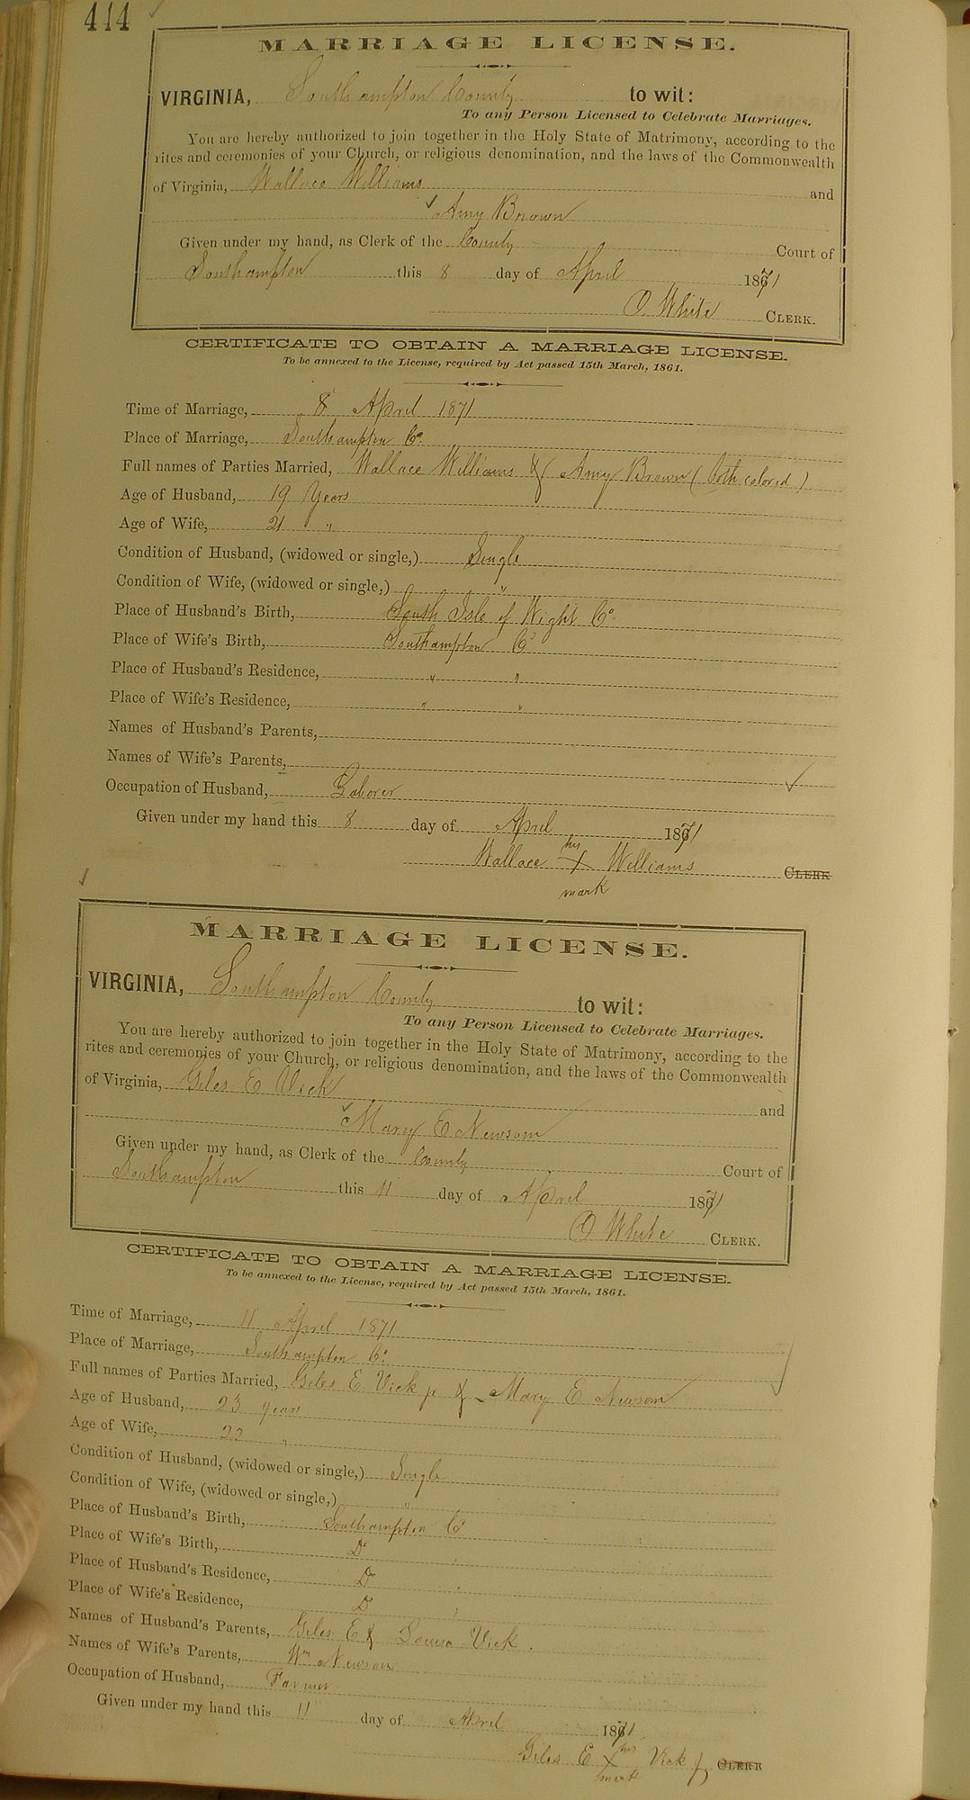 414
MARRIAGE LICENSE.
VIRGINIA, Southampton County to wit:
To any Person Licensed to Celebrate Marriages.
You are hereby authorized to join together in the Holy State of Matrimony, according to the
rites and ceremonies of your Church, or religious denomination, and the laws of the Commonwealth
of Virginia, Wallace Williams and
Amy Brown
Given under my hand, as Clerk of the County Court of
Southampton this 8 day of April 1871
O White CLERK.
CERTIFICATE TO OBTAIN A MARRIAGE LICENSE.
To be annexed to the License, required by Act passed 15th March, 1861.
Time of Marriage, 8 April 1871
Place of Marriage, Southampton Co.
Full names of Parties Married, Wallace Williams & Amy Brown (both colored)
Age of Husband, 19 Years
Age of Wife, 21 "
Condition of Husband, (widowed or single,) Single
Condition of Wife, (widowed or single,) "
Place of Husband's Birth, South Isle of Wight Co.
Place of Wife's Birth, Southampton Co
Place of Husband's Residence, " "
Place of Wife's Residence, " "
Names of Husband's Parents,
Names of Wife's Parents,
Occupation of Husband, Laborer
Given under my hand this 8 day of April 1871
Wallace his X mark Williams CLERK
MARRIAGE LICENSE.
VIRGINIA, Southampton County to wit:
To any Person Licensed to Celebrate Marriages.
You are hereby authorized to join together in the Holy State of Matrimony, according to the
rites and ceremonies of your Church, or religious denomination, and the laws of the Commonwealth
of Virginia, Giles E Vick and
Mary E Newsom
Given under my hand, as Clerk of the County Court of
Southampton this 11 day of April 1871
O White CLERK.
CERTIFICATE TO OBTAIN A MARRIAGE LICENSE.
To be annexed to the License, required by Act passed 15th March, 1861.
Time of Marriage, 11 April 1871
Place of Marriage, Southampton Co.
Full names of Parties Married, Giles E Vick jr & Mary E Newsom
Age of Husband, 23 years
Age of Wife, 22 "
Condition of Husband, (widowed or single,) Single
Condition of Wife, (widowed or single,) "
Place of Husband's Birth, Southampton Co
Place of Wife's Birth, Do
Place of Husband's Residence, Do
Place of Wife's Residence, Do
Names of Husband's Parents, Giles E & Louisa Vick.
Names of Wife's Parents, Wm Newsom
Occupation of Husband, Farmer
Given under my hand this 11 day of April 1871
Giles E his X mark Vick jr CLERK